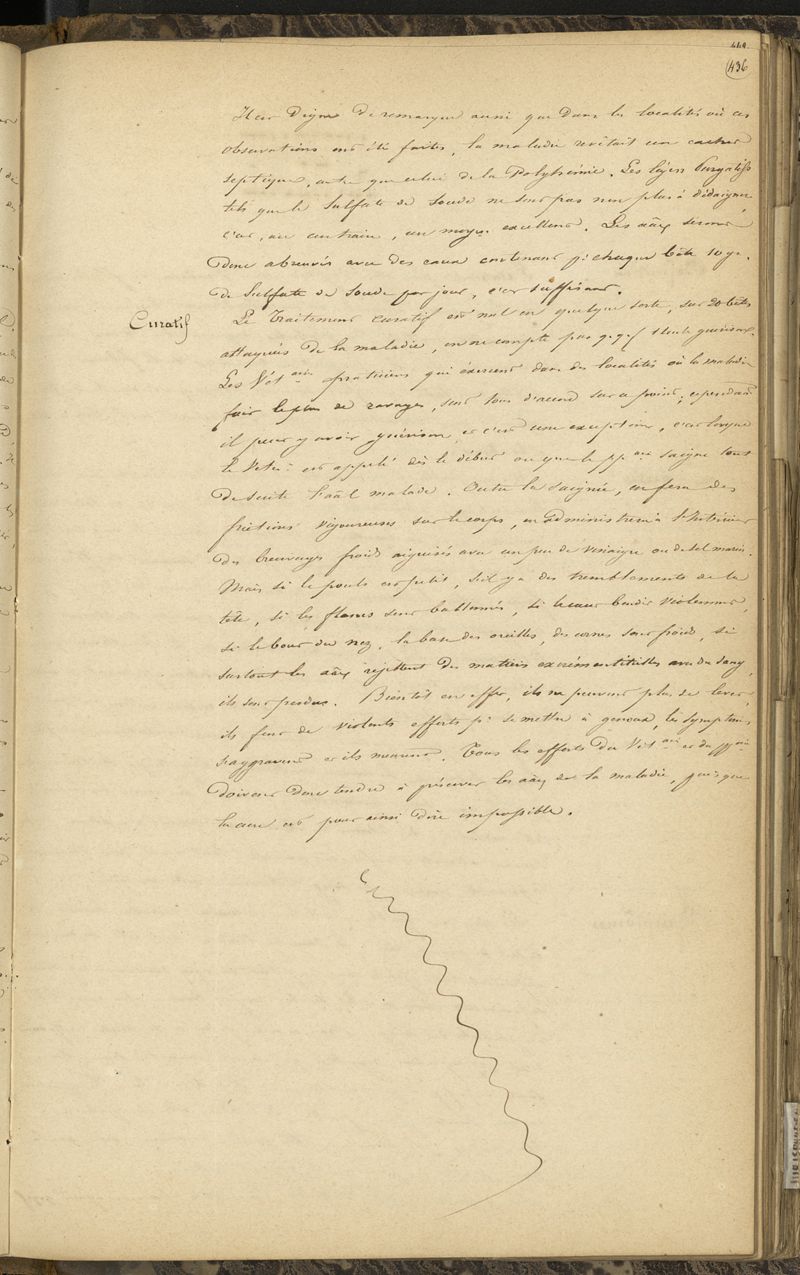 449
436
Il est digne de remarque aussi que dans les localités où ces
observations ont été faites, la maladie revêtait un cachet
septique, autre que celui de la Polyhémie. Les légers Purgatifs
tels que le Sulfate de Soude ne sont pas non plus à dédaigner
c'est, au contraire, un moyen excellent. Les aãux seront
donc abreuvés avec des eaux contenant pr chaque bête 10 gr.
de Sulfate de Soude par jour, c'est suffisant.
Curatif
Le Traitement curatif est nul en quelque sorte, sur 20 bêtes
attaquées de la maladie, on ne compte pas qqf 1 seule guérison.
Les Vétaires praticiens qui exercent dans des localités où la maladie
fait le plus de ravages, sont tous d'accord sur ce point; cependant
il peut y avoir guérison, et c'est une exception, c'est lorsque
le Vétre est appelé dès le début ou que le ppaire saigne tout
de suite l'aãl malade. Outre la saignée, on fera des
frictions vigoureuses sur le corps, on administrera à l'intérieur
des breuvages froids aiguisés avec un peu de vinaigre ou de sel marin.
Mais si le pouls est petit, s'il y a des tremblements de la
tête, si les flancs sont ballonnés, si le cœur bondit violemment,
si le bout du nez, la base des oreilles, des cornes sont froids, si
surtout les aãux rejettent des matières excrémentitielles avec du sang,
ils sont perdus. Bientôt en effet, ils ne peuvent plus se lever,
ils font de violents efforts pr se mettre à genoux, les symptômes
s'aggravent et ils meurent. Tous les efforts du Vétaire et du ppaire
doivent donc tendre à préserver les aãux de la maladie, puisque
la cure est pour ainsi dire impossible.